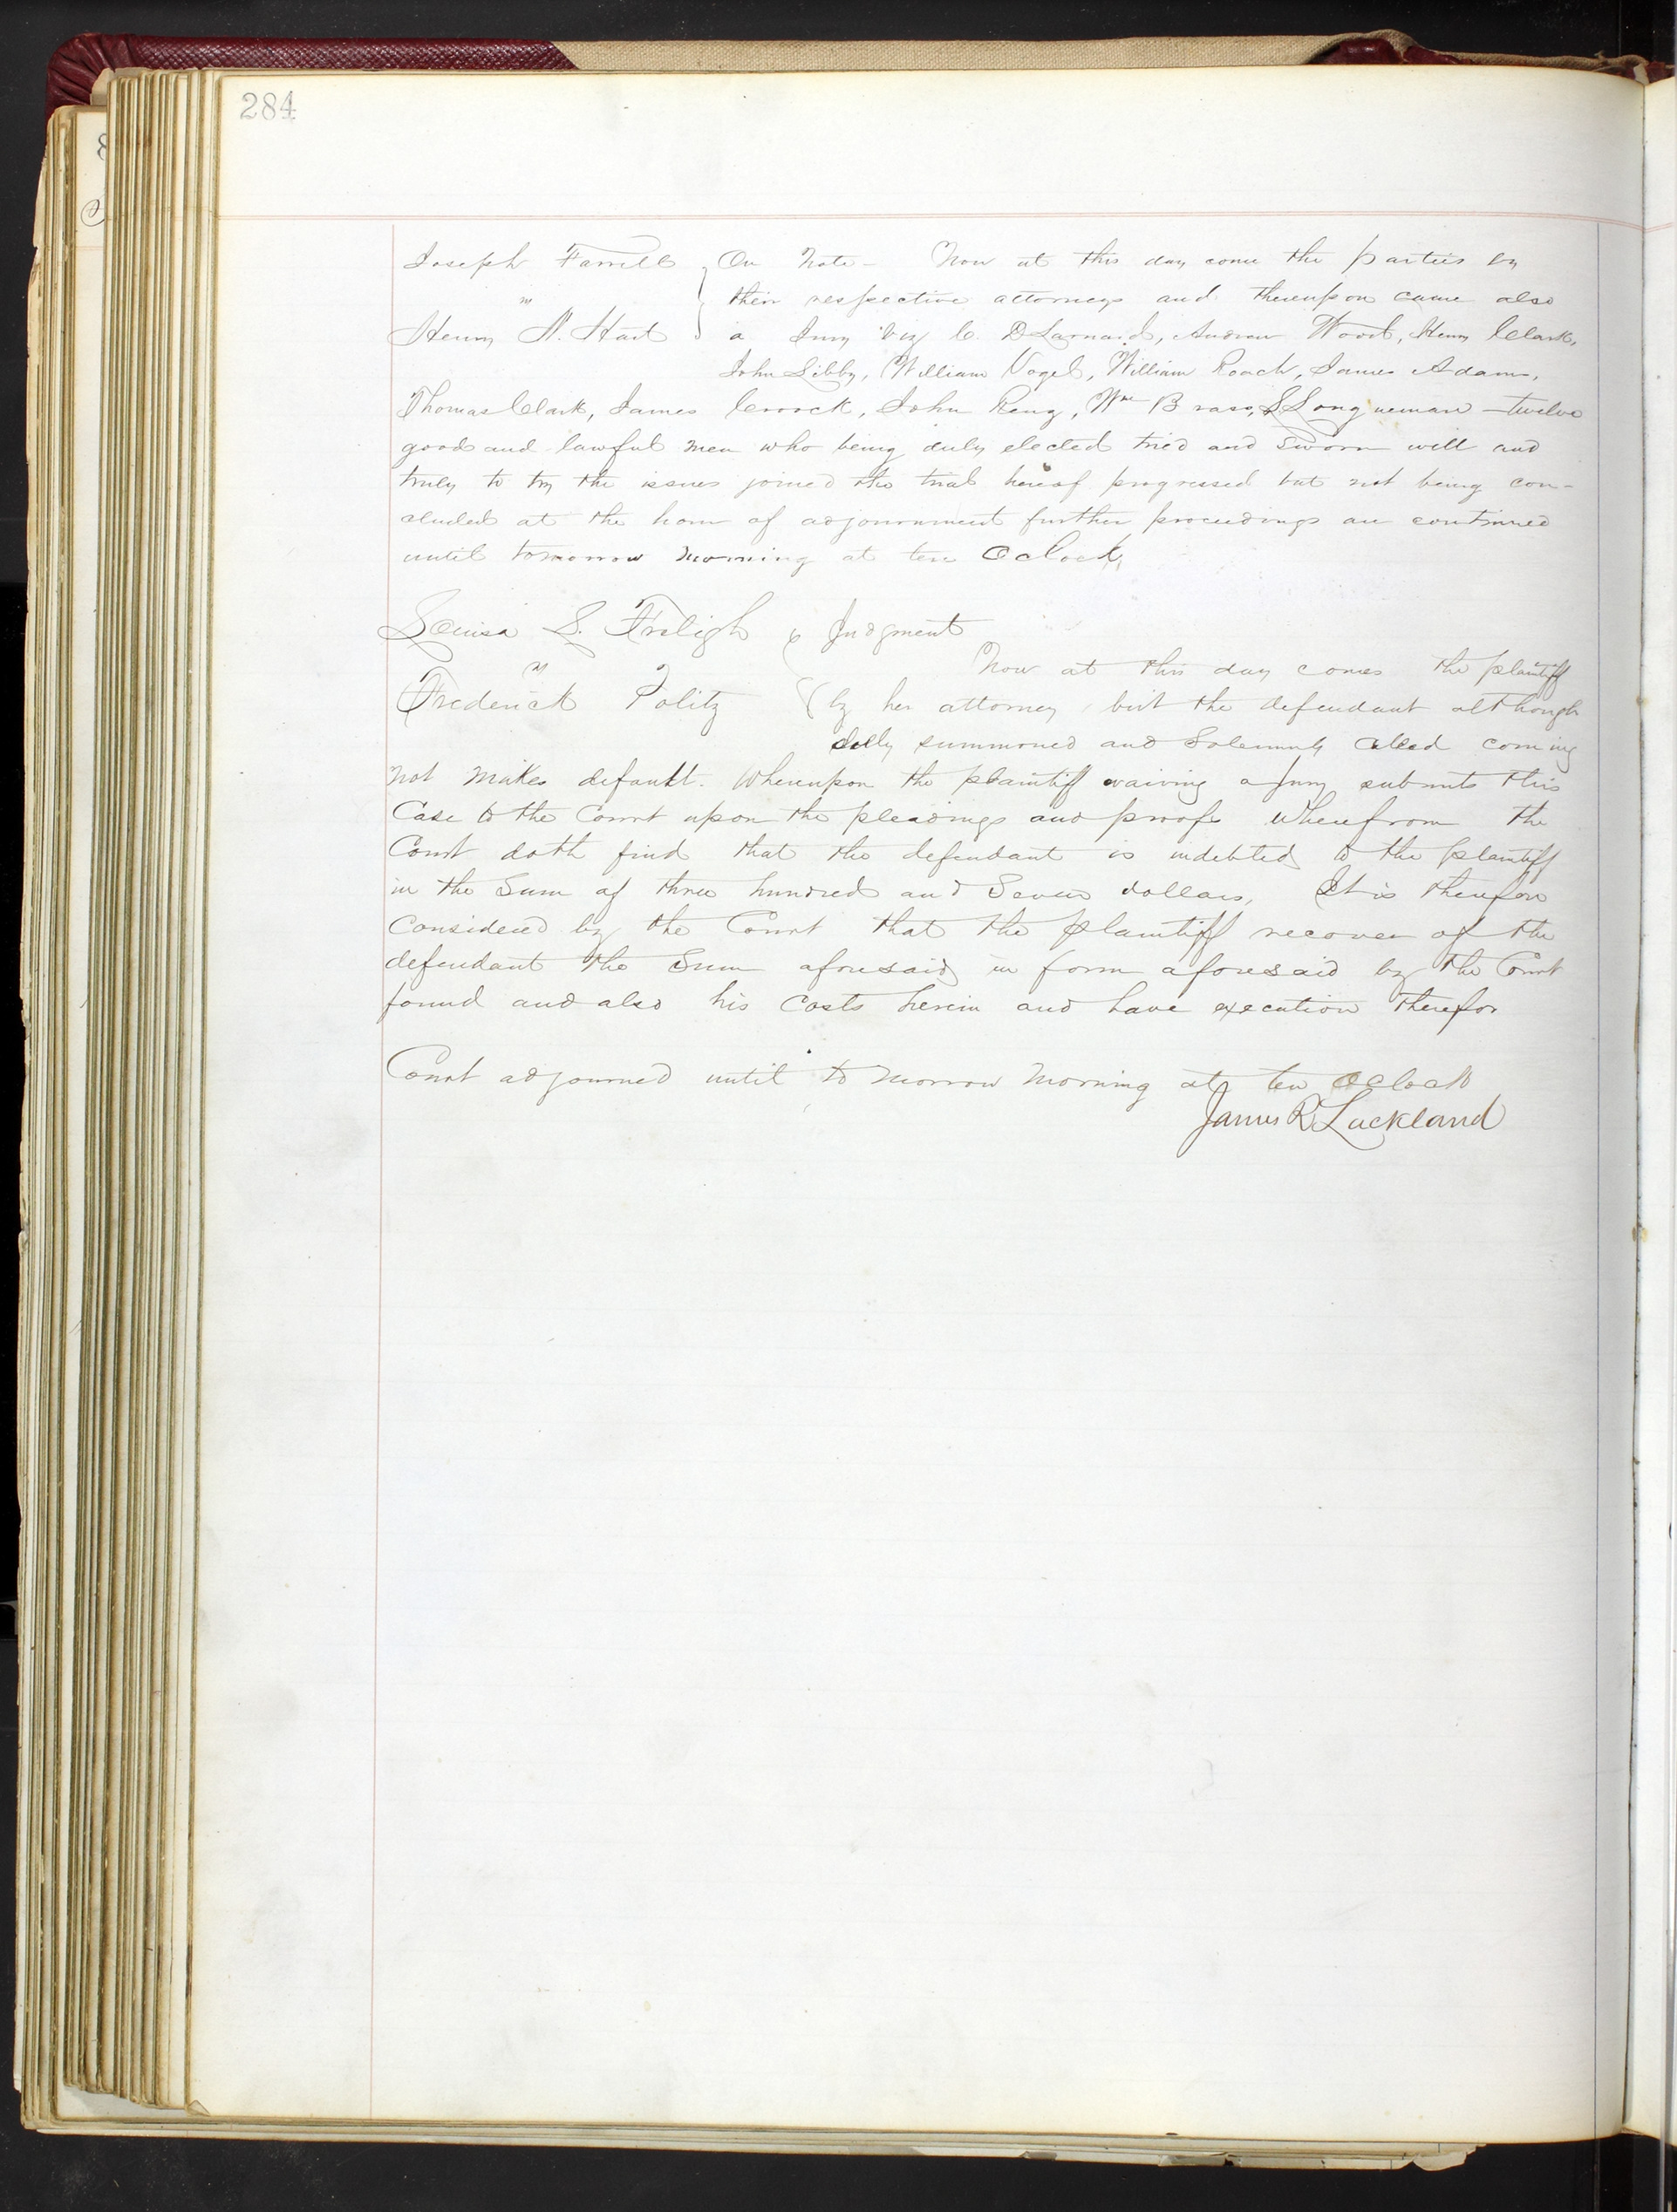 284
Joseph Farrell } On Note - Now at this day come the parties by
vs their respective attorneys and thereupon came also
Henry N. Hart a Jury viz C. D Larnard, Andrew Wood, Henry Clark,
John Libby, William Vogel, William Roach, James Adams,
Thomas Clark, James Crook, John Reny, Wm Brass, S. Longueman - twelve
good and lawful men who being duly elected tried and sworn well and
truly to try the issues joined the trial hereof progressed but not being con-
cluded at the hour of adjournment further proceedings are continued
until tomorrow morning at ten Oclock,
Louisa S. Fraligh } Judgment
vs Now at this day comes the plaintiff
Frederick Politz by her attorney, but the defendant although
dully summoned and Solemnly Called coming
not makes default. Whereupon the plaintiff waiving a Jury submits this
Case to the Court upon the pleadings and proofs wherefrom the
Court doth find that the defendant is indebted to the plaintiff
in the Sum of three hundred and Seven dollars, It is therefore
Considered by the Court that the plaintiff recover of the
defendant the Sum aforesaid in form aforesaid by the Court
found and also his Costs herein and have execution therefor
Court adjourned until to morrow morning at ten Oclock
James R Lackland